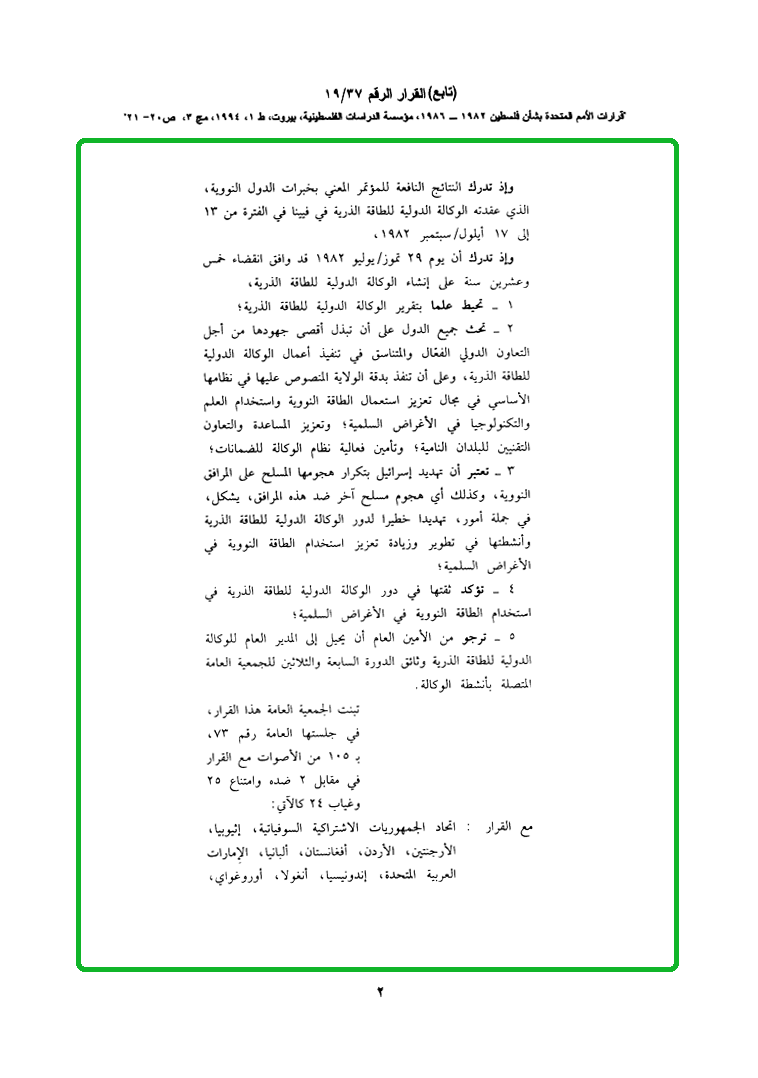 (تابع) القرار الرقم ١٩/٣٧
"قرارات الأمم المتحدة بشأن فلسطين ١٩٨٢ ــ ١٩٨٦، مؤسسة الدراسات الفلسطينية، بيروت، ط ١، ١٩٩٤، مج ٣، ص٢٠- ٢١"
وإذ تدرك النتائج النافعة للمؤتمر المعني بخبرات الدول النووية،
الذي عقدته الوكالة الدولية للطاقة الذرية في فيينا في الفترة من ١٣
إلى ١٧ أيلول/سبتمبر ١٩٨٢،
وإذ تدرك أن يوم ٢٩ تموز/يوليو ١٩٨٢ قد وافق انقضاء خمس
وعشرين سنة على إنشاء الوكالة الدولية للطاقة الذرية،
١ ــ تحيط علما بتقرير الوكالة الدولية للطاقة الذرية؛
٢ ــ تحث جميع الدول على أن تبذل أقصى جهودها من أجل
التعاون الدولي الفعّال والمتناسق في تنفيذ أعمال الوكالة الدولية
للطاقة الذرية، وعلى أن تنفذ بدقة الولاية المنصوص عليها في نظامها
الأساسي في مجال تعزيز استعمال الطاقة النووية واستخدام العلم
والتكنولوجيا في الأغراض السلمية؛ وتعزيز المساعدة والتعاون
التقنيين للبلدان النامية؛ وتأمين فعالية نظام الوكالة للضمانات؛
٣ ــ تعتبر أن تهديد إسرائيل بتكرار هجومها المسلح على المرافق
النووية، وكذلك أي هجوم مسلح آخر ضد هذه المرافق، يشكل،
في جملة أمور، تهديدا خطيرا لدور الوكالة الدولية للطاقة الذرية
وأنشطتها في تطوير وزيادة تعزيز استخدام الطاقة النووية في
الأغراض السلمية؛
٤ ــ تؤكد ثقتها في دور الوكالة الدولية للطاقة الذرية في
استخدام الطاقة النووية في الأغراض السلمية؛
٥ ــ ترجو من الأمين العام أن يحيل إلى المدير العام للوكالة
الدولية للطاقة الذرية وثائق الدورة السابعة والثلاثين للجمعية العامة
المتصلة بأنشطة الوكالة.
تبنت الجمعية العامة هذا القرار،
في جلستها العامة رقم ٧٣،
بـ ١٠٥ من الأصوات مع القرار
في مقابل ٢ ضده وامتناع ٢٥
وغياب ٢٤ كالآتي:
مع القرار : اتحاد الجمهوريات الاشتراكية السوفياتية، إثيوبيا،
الأرجنتين، الأردن، أفغانستان، ألبانيا، الإمارات
العربية المتحدة، إندونيسيا، أنغولا، أوروغواي،
٢